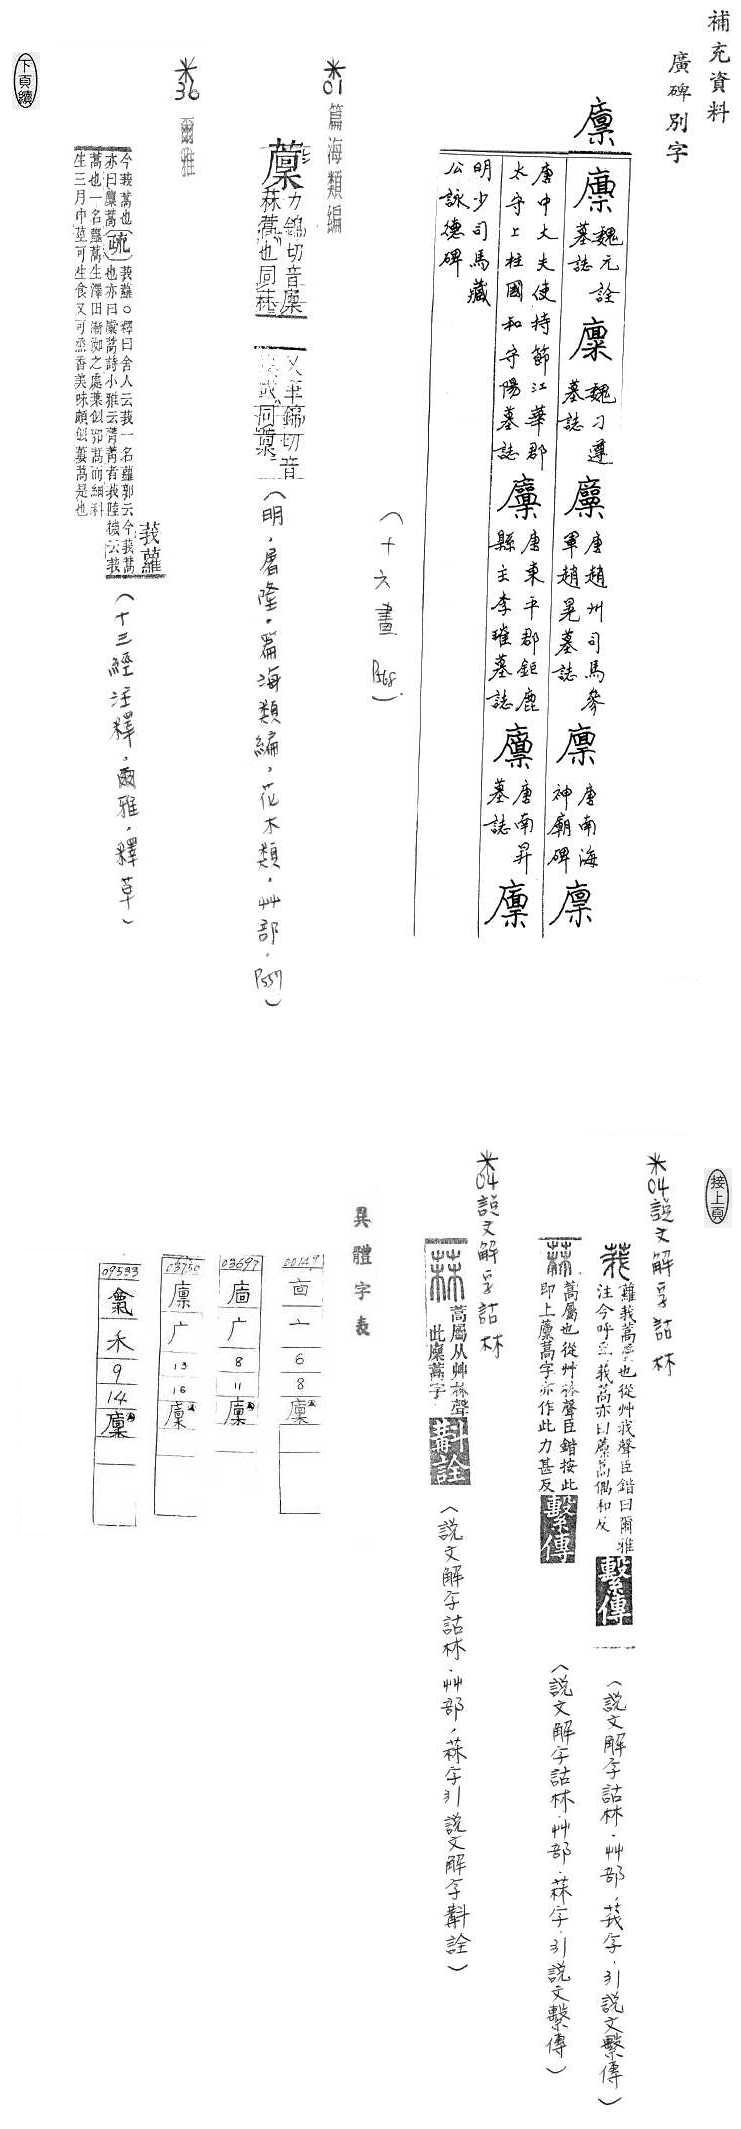 補充資料
廣碑別字
廩
廩 魏元詮墓誌
廪 魏刁遵墓誌
廩 唐趙州司馬參軍趙晃墓誌
廪 唐南海神廟碑
廪
唐中大夫使持節江華郡太守上柱國和守陽墓誌
廩 唐東平郡鉅鹿縣主李璀墓誌
廩 唐南昇墓誌
廩
明少司馬藏公詠德碑
(十六畫 P568)
米01 篇海類編
力錦切音廩
菻蒿也同菻
又筆錦切音
同稟
(明.屠隆.篇海類編.花木類.艸部.P557)
米36 爾雅
莪蘿
今莪蒿也亦曰廩蒿
疏
莪蘿○釋曰舍人云莪一名蘿郭云今莪蒿也亦曰廩蒿詩小雅云菁菁者莪陸機云莪蒿也一名蘿蒿生澤田漸洳之處葉似邪蒿而細科生三月中莖可生食又可烝香美味頗似蔞蒿是也
(十三經注釋.爾雅.釋草)
下頁續
接上頁
米04 說文解字詁林
莪
蘿莪蒿屬也從艸我聲臣鍇曰爾雅
注今呼莪蒿亦曰廩蒿偶和反
繫傳
(說文解字詁林.艸部.莪字.引說文繫傳)
菻
蒿屬也從艸林聲臣鍇按此
即上廩蒿字亦作此力甚反
繫傳
(說文解字詁林.艸部.菻字.引說文繫傳)
米04 說文解字詁林
菻
蒿屬从艸林聲
此廩蒿字
斠詮
(說文解字詁林.艸部.菻字引說文解字斠詮)
異體字表
00149
㐭
亠
6
8
廩
03697
广
8
11
廩
03750
廪
广
13
16
廩
09533
禾
9
14
廩